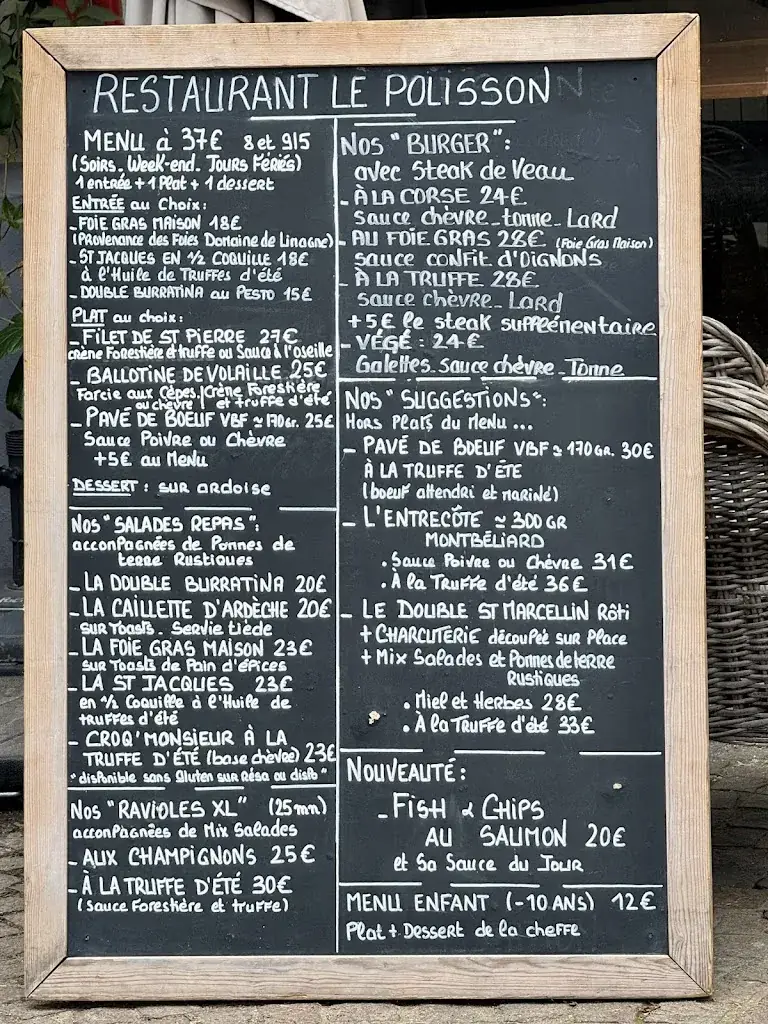 RESTAURANT LE POLISSON
MENU à 37€ 8 et 9|5
(Soirs. Week-end. Jours Fériés)
1 entrée + 1 Plat + 1 dessert
ENTRÉE au Choix:
- FOIE GRAS MAISON 18€
(Provenance des Foies Domaine de Limagne)
- ST JACQUES EN 1/2 COQUILLE 18€
à l'Huile de TRUFFES d'été
- DOUBLE BURRATINA au PESTO 15€
PLAT au choix:
- FILET DE ST PIERRE 27€
crème Forestière et truffe ou Sauce à l'oseille
- BALLOTINE DE VOLAILLE 25€
Farcie aux Cèpes | Crème Forestière
ou chèvre | et truffe d'été
- PAVÉ DE BOEUF VBF ≃ 170gr. 25€
Sauce Poivre ou Chèvre
+5€ au Menu
DESSERT: sur ardoise
Nos "SALADES REPAS":
accompagnées de Pommes de
terre Rustiques
- LA DOUBLE BURRATINA 20€
- LA CAILLETTE D'ARDÈCHE 20€
sur Toasts. Servie tiède
- LA FOIE GRAS MAISON 23€
sur Toasts de Pain d'épices
- LA ST JACQUES 23€
en 1/2 Coquille à l'Huile de
truffes d'été
- CROQ'MONSIEUR À LA
TRUFFE D'ÉTÉ (base chèvre) 23€
"disponible sans Gluten sur Résa ou dispo"
Nos "RAVIOLES XL" (25mn)
accompagnées de Mix Salades
- AUX CHAMPIGNONS 25€
- À LA TRUFFE D'ÉTÉ 30€
(Sauce Forestière et truffe)
Nos "BURGER":
avec Steak de Veau
- À LA CORSE 24€
sauce chèvre - tomme - Lard
- AU FOIE GRAS 28€ (Foie Gras Maison)
sauce confit d'oignons
- À LA TRUFFE 28€
sauce chèvre - Lard
+5€ le steak supplémentaire
- VÉGÉ: 24€
Galettes. sauce chèvre - Tomme
Nos "SUGGESTIONS":
Hors Plats du Menu ...
- PAVÉ DE BOEUF VBF ≃ 170GR. 30€
À LA TRUFFE D'ÉTÉ
(boeuf attendri et mariné)
- L'ENTRECÔTE ≃ 300 GR
MONTBÉLIARD
. Sauce Poivre ou Chèvre 31€
. À la Truffe d'été 36€
- LE DOUBLE ST MARCELLIN Rôti
+ CHARCUTERIE découpée sur Place
+ Mix Salades et Pommes de terre
Rustiques
. Miel et Herbes 28€
. À la Truffe d'été 33€
NOUVEAUTÉ:
- FISH & CHIPS
AU SAUMON 20€
et Sa Sauce du Jour
MENU ENFANT (-10 ANS) 12€
Plat + Dessert de la cheffe